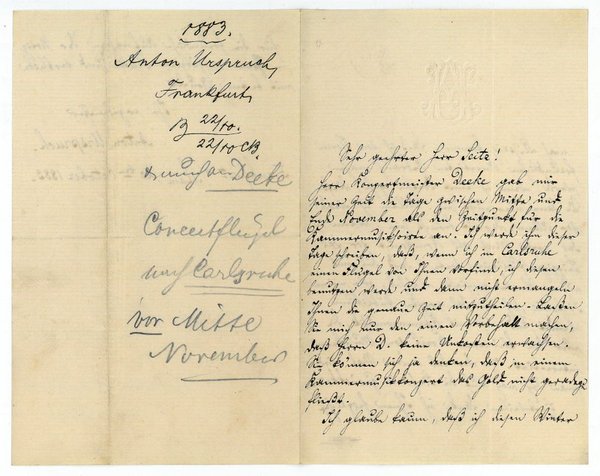 1883.
Anton Urspruch,
Frankfurt,
B 22/10.
22/10 CB.
Deeke
Concertflügel
nach Carlsruhe
vor Mitte
November
Sehr geehrter Herr Seitz!
Herr Konzertmeister Deeke gab mir
seiner Zeit die Tage zwischen Mitte und
Ende November als den Zeitpunkt für die
Kammermusiksoirée an. Ich werde ihm dieser
Tage schreiben, daß, wenn ich in Carlsruhe
einen Flügel von Ihnen vorfinde, ich diesen
benutzen werde und dann nicht ermangeln
Ihnen die genaue Zeit mitzutheilen. Lassen
Sie mich nur den einen Vorbehalt machen,
daß Herrn D. keine Unkosten erwachsen.
Sie können sich ja denken, daß in einem
Kammermusikkonzert das Gold nicht geradezu
fließt.
Ich glaube kaum, daß ich diesen Winter